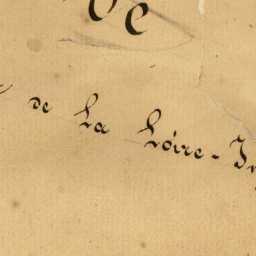 de
de La Loire-In